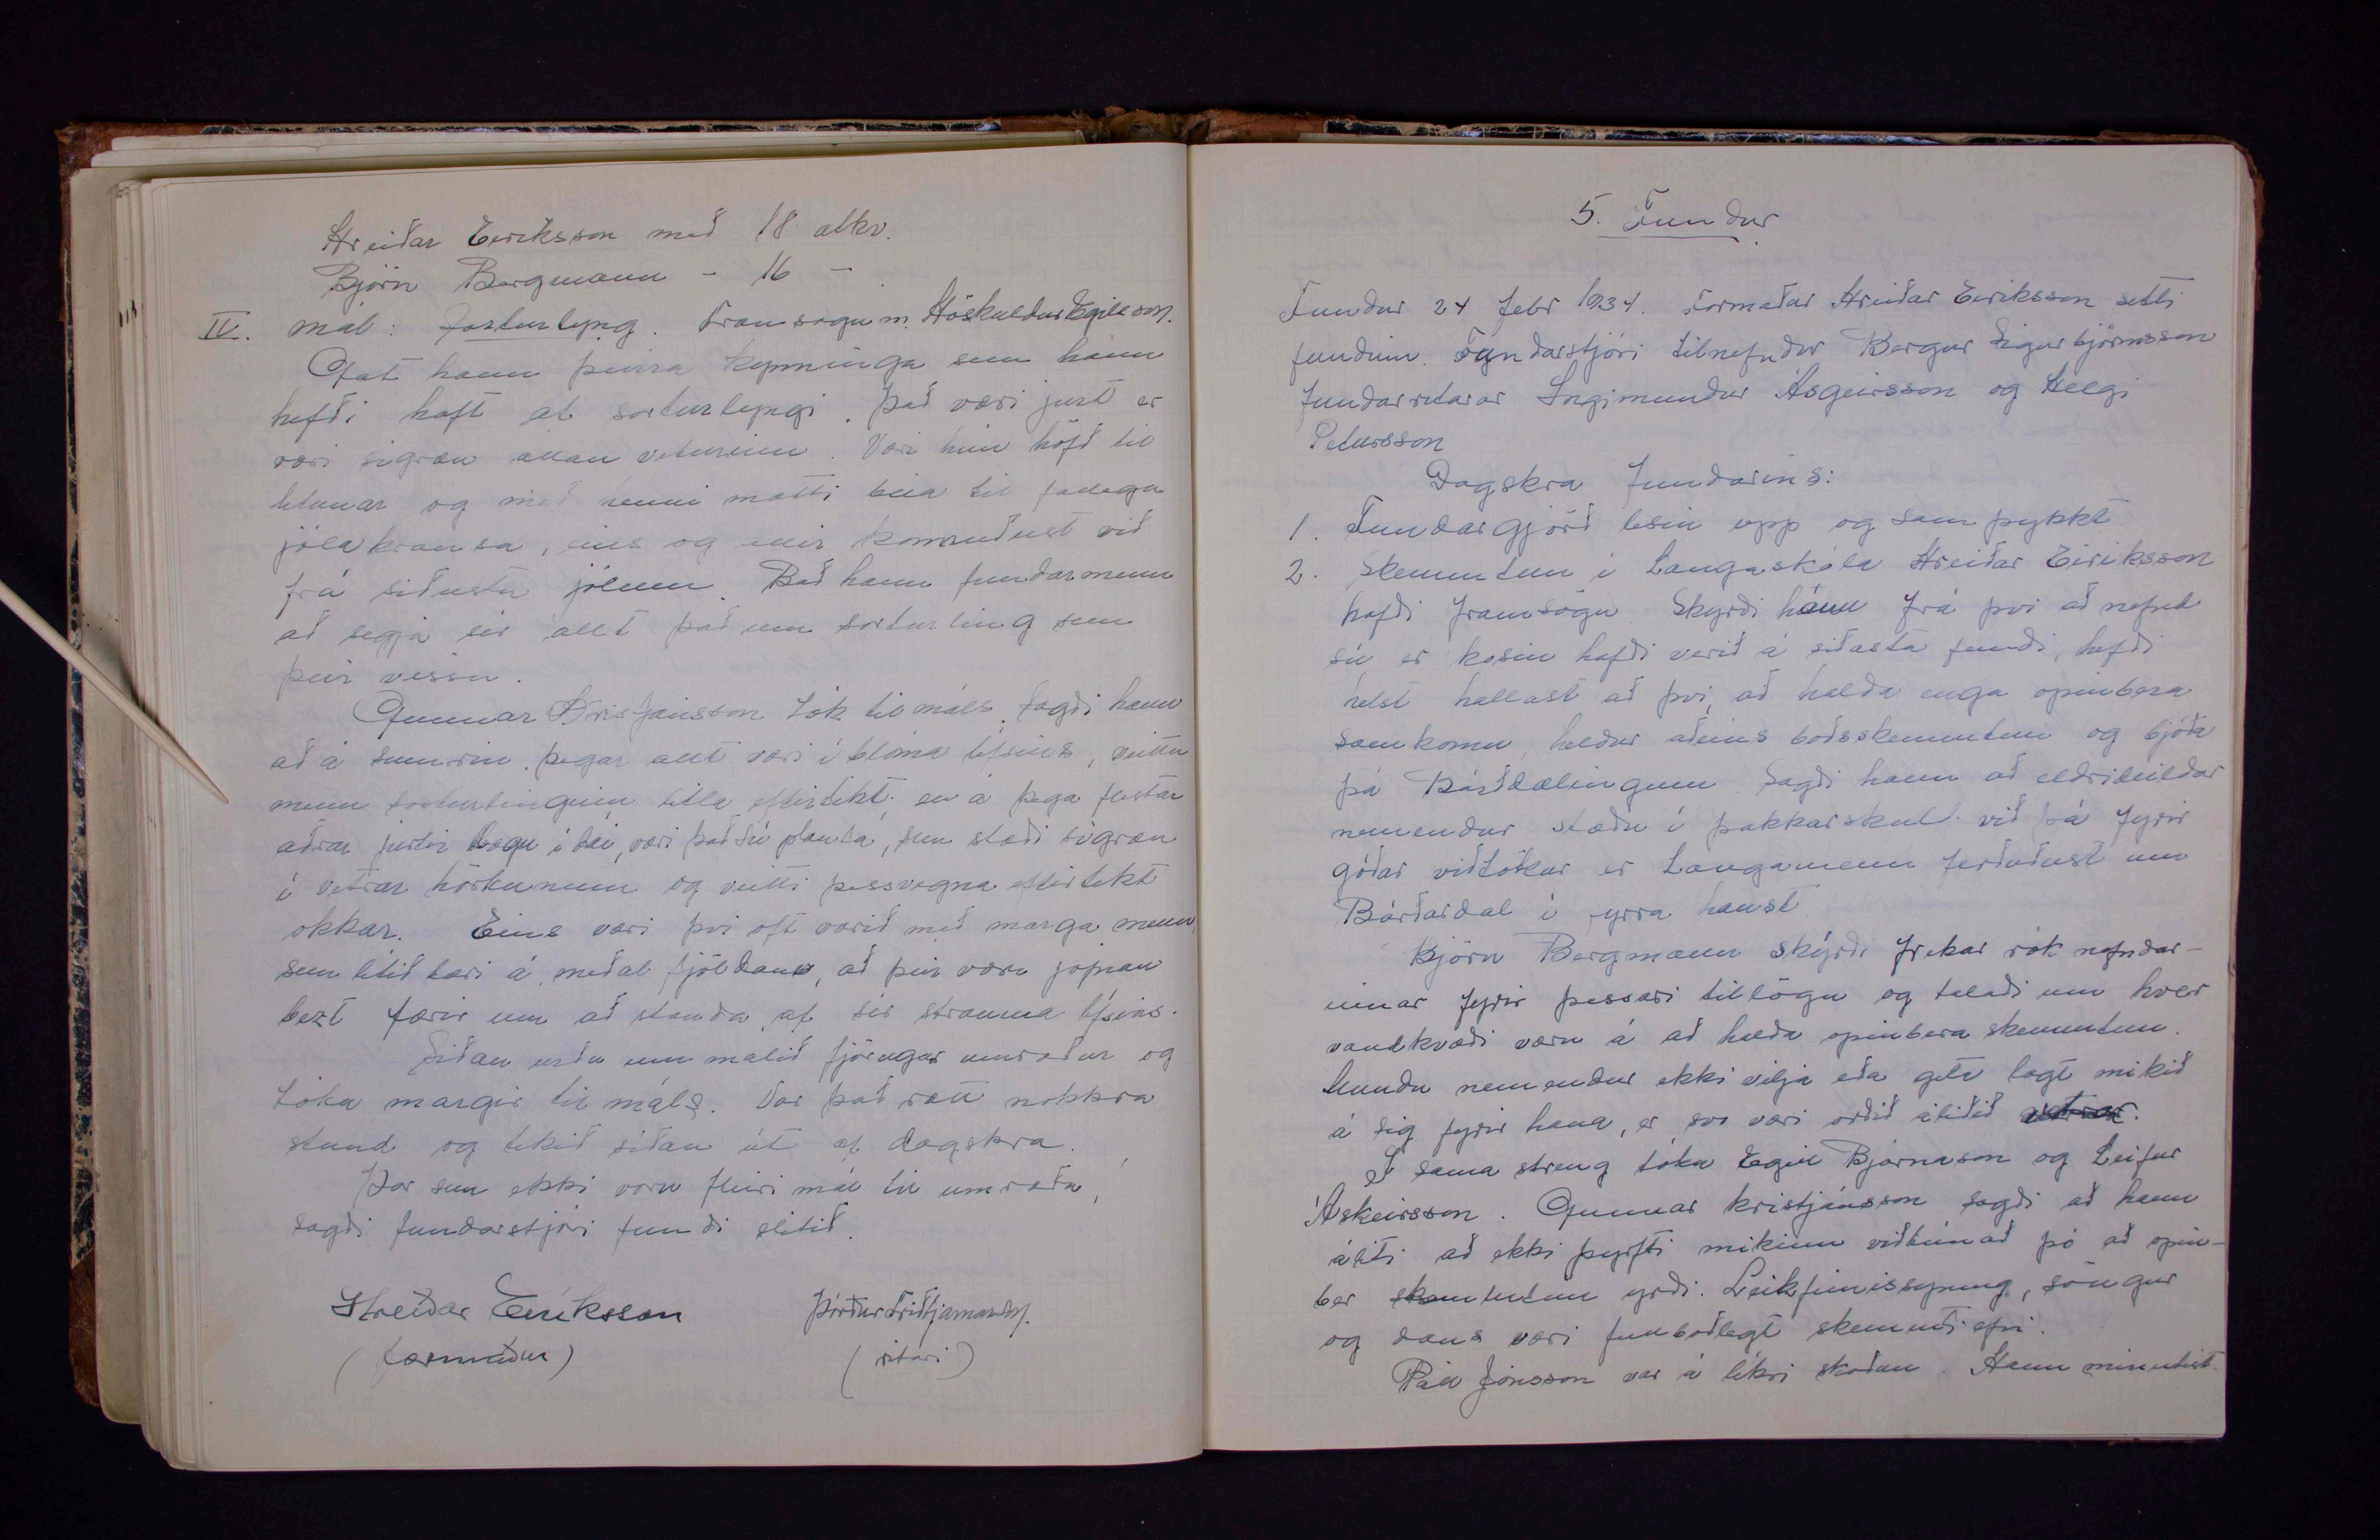 Hreiðar Eiríksson með 18 atkv.
Björn Bergmann - 16 -
IV. mál: Sorturlyng. Framsögum. Höskuldur Egilsson.
Gat hann þeirra kynninga sem hann
hefði haft af sorturlyngi. Það væri jurt er
væri sígræn allan veturinn. Væri hún höfð til
litunar og með henni mætti búa til fallega
jólakransa, eins og menn könnuðust við
frá síðustu jólum. Bað hann fundarmenn
að segja sér allt það um sorturling sem
þeir vissu.
Gunnar Kristjánsson tók til máls. Sagði hann
að á sumrin þegar allt væri í blóma lífsins, veittu
menn sorturlinginu litla eftirtekt, en á þega flestar
aðrar jurtir lægu í dái, væri það sú planta, sem stæði sígræn
í vetrar hörkunum og veitti þessvegna eftirtekt
okkar. Eins væri því oft varið með marga menn,
sem lítið bæri á meðal fjöldans, að þeir væru jafnan
bezt færir um að standa af sér strauma lífsins.
Síðan urðu um málið fjörugar umræður og
tóku margir til máls. Var það rætt nokkra
stund og tekið síðan út af dagskrá.
Þar sem ekki voru fleiri mál til umræðu,
sagði fundarstjóri fundi slitið.
Hreiðar Eiríksson Þórður Friðbjarnarson.
(formaður) (ritari)
5. Fundur
Fundur 24 febr 1934. Formaður Hreiðar Eiriksson setti
fundinn. Fundarstjóri tilnefndur Bergur Sigurbjörnsson
fundarritarar Ingimundur Ásgeirsson og Helgi
Petursson
Dagskra fundarins:
1. Fundargjörð lesin upp og samþykkt
2. Skemmtun i Laugaskóla Hreiðar Eiriksson
hafði framsögu. Skyrði hann frá því að nefnd
sú er kosin hafði verið á siðasta fundi, hefði
helst hallast að því, að halda enga opinbera
samkomu, heldur aðeins boðsskemmtun og bjóða
þá Bárðdælingum. Sagði hann að eldrideildar
nemendur stæðu í þakkarskuld við þá fyrir
góðar viðtökur er Laugamenn ferðuðust um
Bárðardal í fyrra haust.
Björn Bergmann skýrði frekar rök nefndar-
innar fyrir þessari tillögu og talaði um hver
vandkvæði væru á að halda opinbera skemmtun.
Mundu nemendur ekki vilja eða geta lagt mikið
á sig fyrir hana, er svo væri orðið áliðið vetrar.
I sama streng tóku Egill Bjarnason og Leifur
Ásgeirsson. Gunnar Kristjánsson sagði að hann
áliti að ekki þyrfti mikinn viðbúnað þó að opin-
ber skemmtun yrði. Leikfimissyning, söngur
og dans væri fullboðlegt skemmtiefni.
Páll Jónsson var á líkri skoðun. Hann minntist